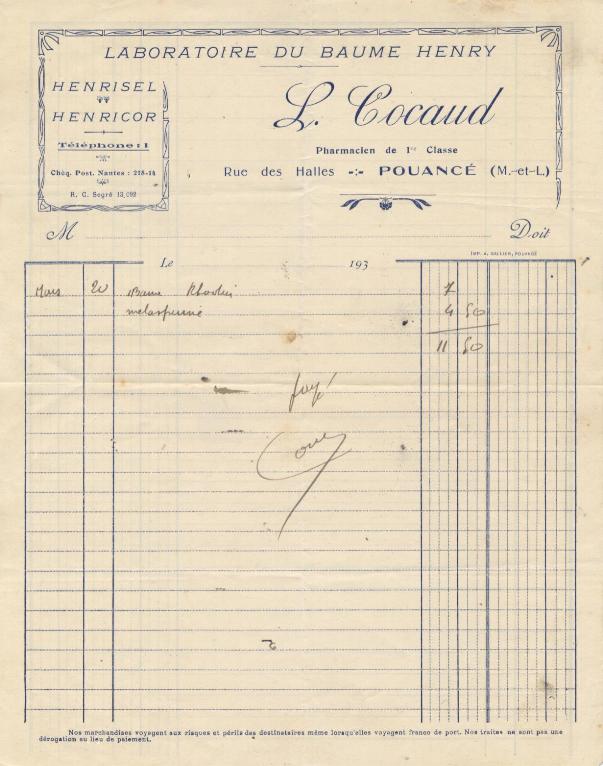 LABORATOIRE DU BAUME HENRY
HENRISEL
HENRICOR
Téléphone : 1
Chèq. Post. Nantes : 218-14
R. C. Segré 13,092
L. Cocaud
Pharmacien de 1re Classe
Rue des Halles -:- POUANCÉ (M.-et-L.)
M Doit
IMP. A. GALLIER, POUANCÉ
Le 193
Mars 20 Baume 7
4 50
11 50
payé
Nos marchandises voyagent aux risques et périls des destinataires même lorsqu'elles voyagent franco de port. Nos traites ne sont pas une
dérogation au lieu de paiement.